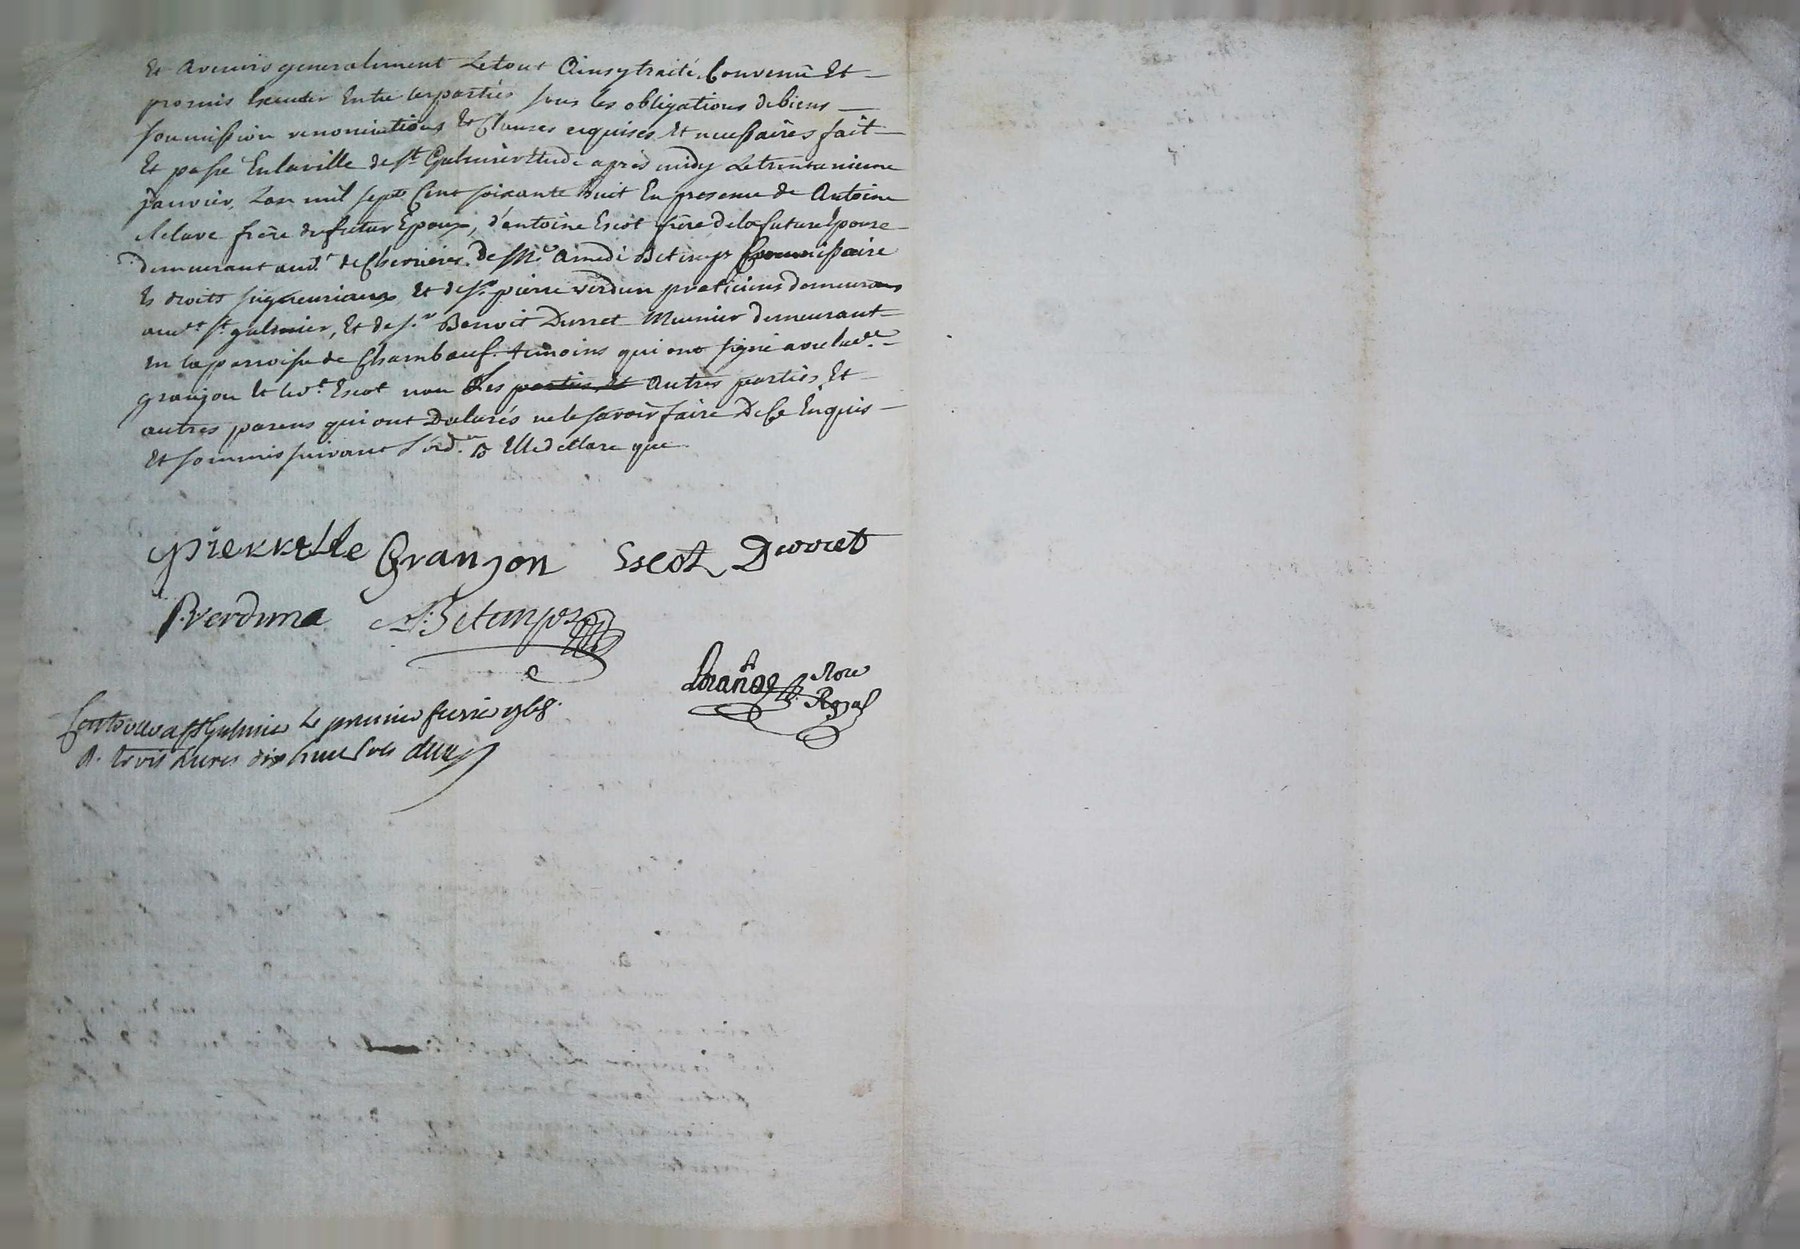 Et avenirs generalement Le tout Ainsy traité, Convenu Et
promis Executer Entre les parties sous les obligations de biens
soumission renonciations Et Clauses requises Et necessaires fait
Et passé En la ville de St Galmier Etude apres midy Le trente unieme
janvier, L'an mil sept Cent soixante huit En presence de Antoine
frere du futur Epoux, d'antoine Escot frere de la future Epouse
demeurant aud.t de Chevrieres. de M.e Amedé Betemps Commissaire
Es droits seigneuriaux Et de s.r pierre verdun praticiens demeurans
aud.t St galmier, Et de s.r Benoit Durret Meunier demeurant
En la parroisse de Chambœuf. temoins qui ont signé avec lad.e
granjon Et led.t Escot non Les parties Et autres parties, Et
autres parens qui ont Declarés ne le savoir faire De Ce Enquis
Et sommés suivant l'ord.ce Elle declare que
pierrette Granjon Escot Durret
P. verdun A. Betemps
Nore
Royal
Controllé a St Galmier Le premier fevrier 1768.
R. trois Livres dix huit sols